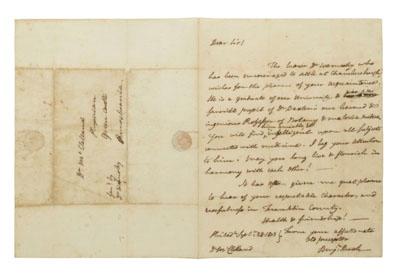 Dear Sir/
The bearer Dr
has been encouraged to settle at Chambersburgh,
wishes for the pleasure of your acquaintance.
He is a graduate of our University &
favorite pupil of Dr Barton's our learned &
ingenious Professor of Botany & materia medica
You will find intelligent upon all subjects
connected with medicine. I beg your attention
to him. may you long live & flourish in
harmony with each other!
It has often given me great pleasure
to hear of your respectable character, and
usefulness in Franklin County.
Health & friendship!
From your affectionate
old preceptor
Benjn Rush
Dr McClelland
Physician
Greencastle
Pennsylvania